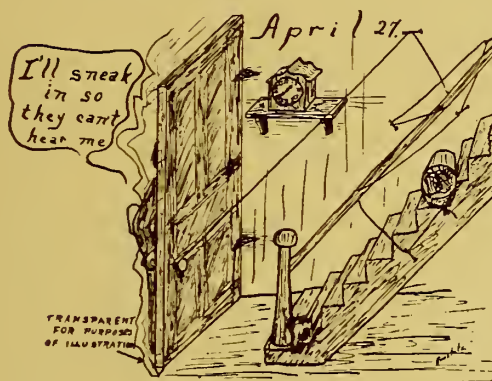 April 27.
I'll sneak
in so
they can't
hear me
TRANSPARENT
FOR PURPOSES
OF ILLUSTRATION